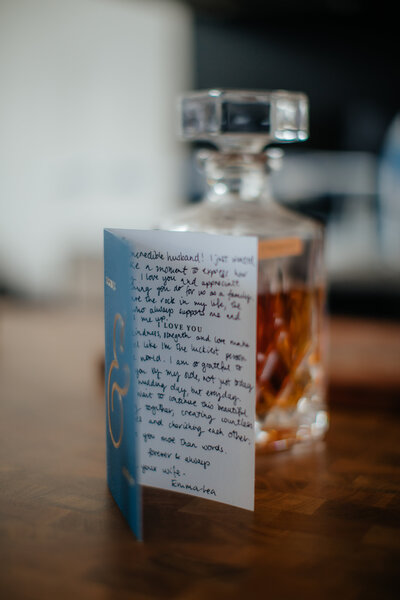 incredible husband! I just wanted
a moment to express how
I love you and appreciate
you do for us as a family.
are the rock in my life, the
who always supports me and
me up.
I LOVE YOU
kindness, strength and love make
like I'm the luckiest person
world. I am so grateful to
you by my side, not just today
wedding day, but everyday.
want to continue this beautiful
together, creating countless
and cherishing each other.
you more than words.
forever & always
your wife.
Emma-Lea
&